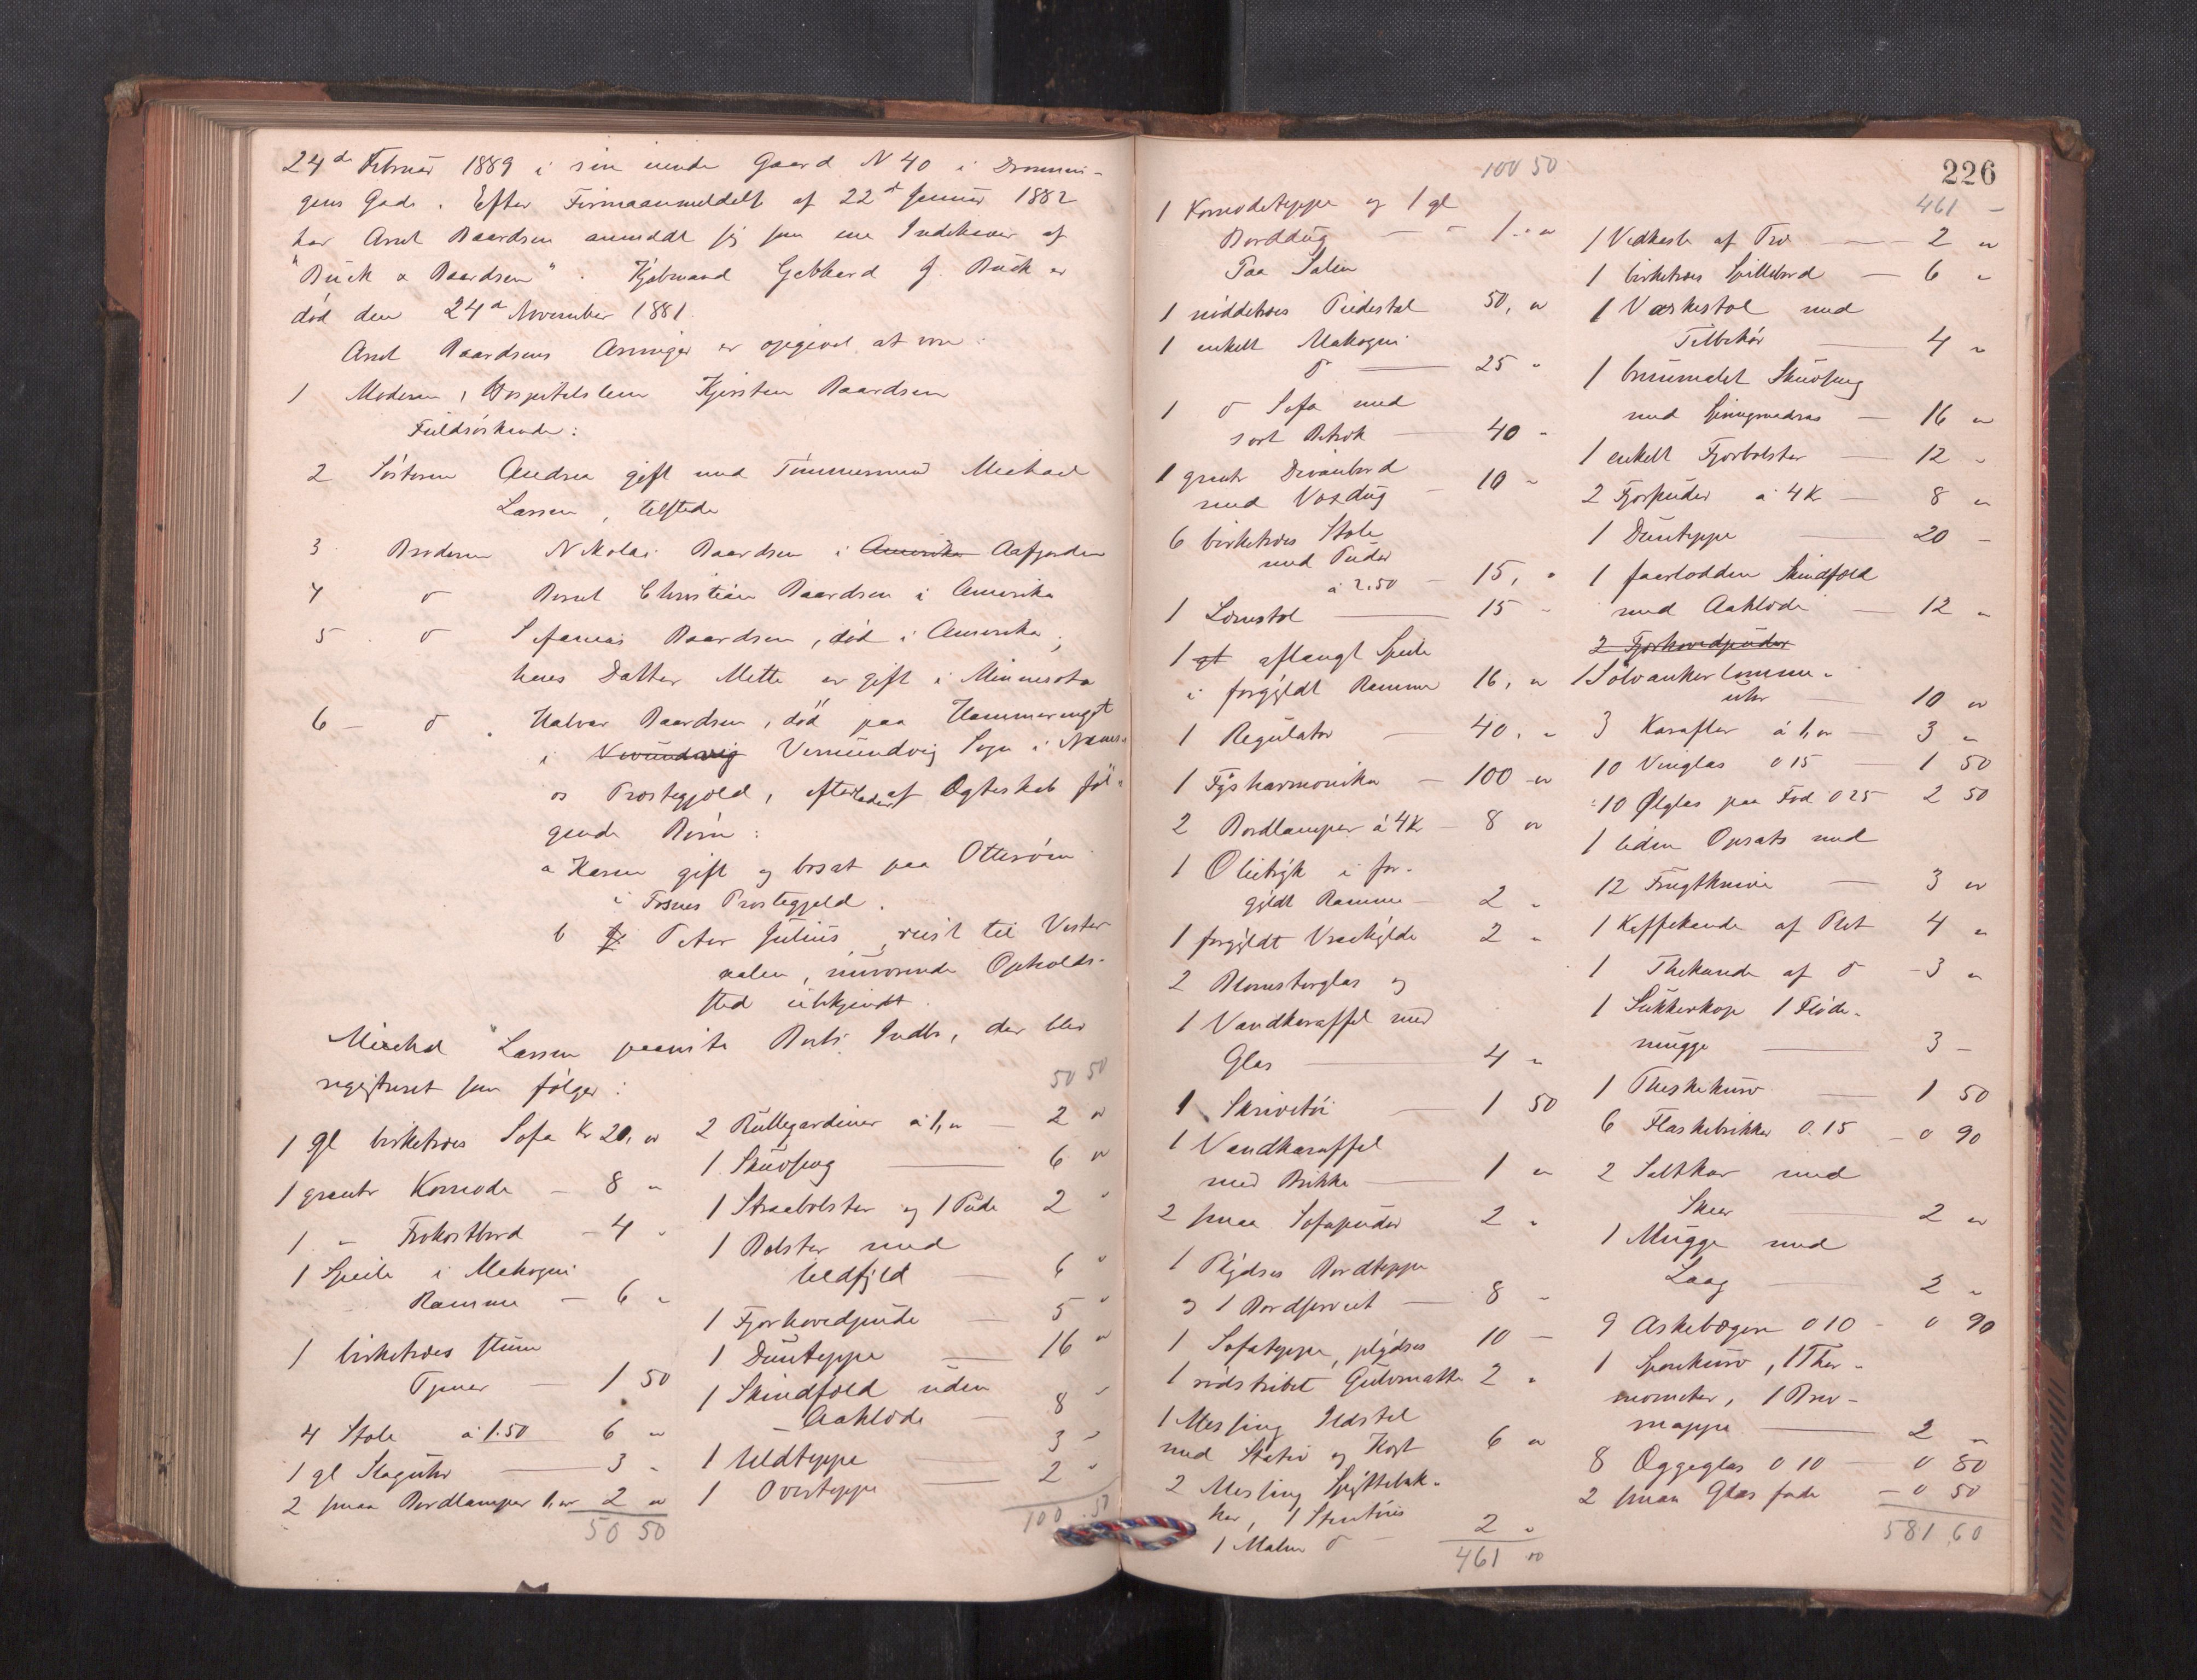 24d Februar 1889 i sin eiende Gaard N 40 i Dronnin-
gens Gade. Efter Firmaanmeldelse af 22d Januar 1882
har Arnt Baardsen anmeldt sig som ene Indehaver af
"Buck & Baardsen". Kjøbmand Gebhard J. Buck er
død den 24d November 1881.
Arnt Baardsens Arvinger er opgivet at være:
1 Moderen, Hospitalslem Kjersten Baardsen
Fuldsøskende:
2 Søsteren Andrea gift med Tømmermand Michael
Larsen, tilstede
3 Broderen Nikolai Baardsen i Amerika Aafjorden
4 do Bernt Christian Baardsen i Amerika
5 do Sefanias Baardsen, død i Amerika;
hans Datter Mette er gift i Minnesota
6 - do Halvar Baardsen, død paa Hammerungst
i Vemundvig Sogn i Namsos
Prestegjeld, efterlader af Ægteskab føl-
gende Børn:
a Karen gift og bosat paa Otterøen
i Fosnes Prestegjeld.
b Peter Julius, reist til Vester
aalen, nuværende Opholds-
sted ubekjendt.
Michal Larsen paaviste Boets Indbo, der blev
registreret som følger:
1 gl birketræes Sofa Kr 20, "
1 grantr Komode - 8 "
1 " Frokostbord - 4 "
1 Speile i Mahogni
Ramme - 6 "
1 birketræes stum
Tjener - 1 50
4 Stole á 1.50 6 "
1 gl Slaguhr 3 "
2 smaa Bordlamper 1," 2 "
50 50
50 50
2 Rullegardiner á 1," - 2 "
1 Skuvseng 6 "
1 Straabolster og 1 Pude 2 "
1 Bolster med
Uldfyld - 6 "
1 Fjærhovedpude - 5 "
1 Dunteppe 16 "
1 Skindfæld uden
Aaklæde - 8 "
1 Uldteppe 3 "
1 Overteppe 2 "
100.50
100 50
1 Komodeteppe og 1 gl
Borddug - - 1. "
Paa Salen
1 nøddetræes Piedestal 50, "
1 enkelt Mahogni
do 25 "
1 do Sofa med
sort Betræk 40 "
1 grantr Divanbord
med Voxdug - 10 "
6 birketræes Stole
med Puder
á 2.50 - 15, "
1 Lænestol 15 "
1 gt aflangt Speile
i forgyldt Ramme 16, "
1 Regulator - 40. "
1 Fysharmonika - 100 "
2 Bordlamper á 4 Kr - 8 "
1 Olietryk i for-
gyldt Ramme - 2 "
1 forgyldt Vraehylde 2 "
2 Blomsterglas og
1 Vandkaraffel med
Glas 4 "
1 Skrivetøi 1 50
1 Vandkaraffel
med Brikke 1 "
2 smaa Sofapuder 2 "
1 Plydses Bordteppe
og 1 Bordserviet - 8 "
1 Sofateppe, plydses 10 -
1 rødstribet Gulvmatte 2 "
1 Messing Ildstel
med Stativ og Kost 6 "
2 Messing Spyttebak-
ker, 1 Stentøis
1 Malm do - 2 "
461 "
226
461 -
1 Vedkasse af Træ 2 "
1 birketræes Spillebord - 6 "
1 Vaskestol med
Tilbehør 4 "
1 brunmalet Skuvseng
med Springmadras - 16 "
1 enkelt Fjærbolster - 12 "
2 Fjærpuder á 4 Kr - 8 "
1 Dunteppe 20 -
1 faarlodden Skindfæld
med Aaklæde - 12 "
2 Fjærhovedpuder
1 Sølvankerlomme-
uhr 10 "
3 Karafler á 1," - 3 "
10 Vinglas 0 15 - 1 50
10 Ølglas paa Fod 0 25 2 50
1 liden Opsats med
12 Frugtknive - 3 "
1 Kaffekande af Plet 4 "
1 Thekande af do - 3 "
1 Sukkerkop 1 Fløde-
mugge 3 -
1 Theskekurv - 1 50
6 Flaskebrikker 0.15 - 0 90
2 Saltkar med
Skeer 2 "
1 Mugge med
Laag 2 "
9 Askebægere 0 10 - 0 90
1 Spaankurv, 1 Ther-
mometer, 1 Brev-
mappe 2 -
8 Æggeglas 0 10 - 0 80
2 smaa Glas fade - 0 50
581,60